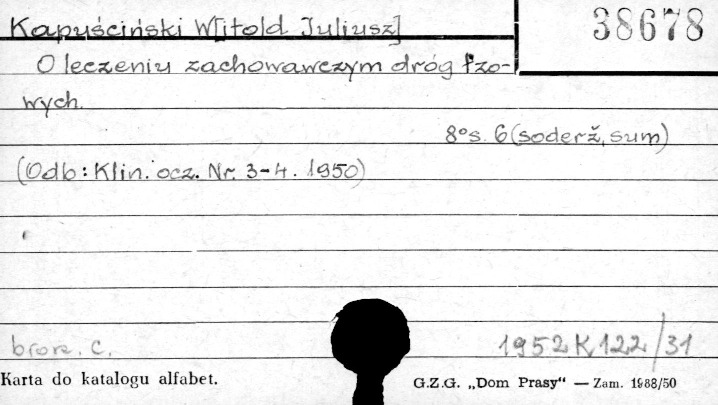 Kapuściński W[itold Juliusz]
38678
O leczeniu zachowawczym dróg łzo-
wych.
8° s. 6 (soderž, sum)
(Odb: Klin. ocz. Nr. 3-4. 1950)
brosz. C.
1952 K 122/31
Karta do katalogu alfabet.
G.Z.G. „Dom Prasy“ — Zam. 1988/50